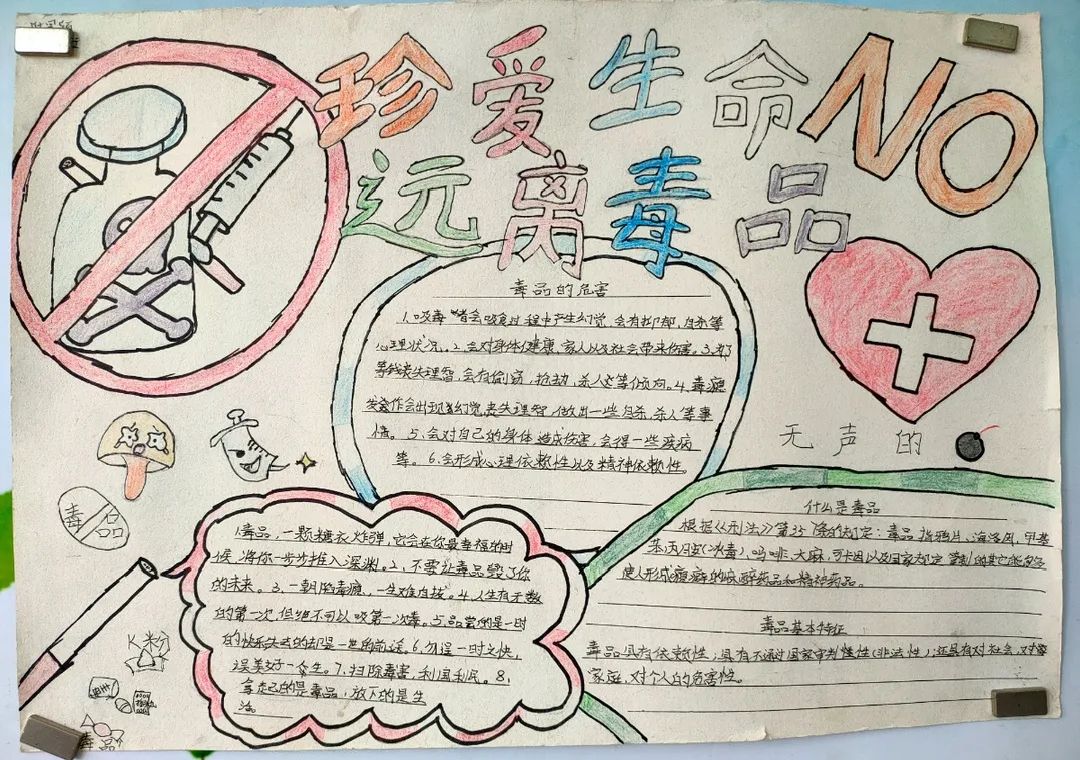 珍爱生命 NO
远离毒品
毒品的危害
1.吸毒者会吸食过程中产生幻觉,会有抑郁,自杀等
心理状况。2.会对身体健康,家人以及社会带来伤害。3.
等钱丧失理智,会有偷窃,抢劫,杀人这等倾向。4.毒瘾
发作会出现幻觉,丧失理智,做出一些自杀,杀人等事
情。5.会对自己的身体造成伤害,会得一些疾病
等。6.会形成心理依赖性以及精神依赖性。
无声的
什么是毒品
根据《刑法》第35条的规定:毒品指鸦片、海洛因、甲基
苯丙胺(冰毒)、吗啡、大麻、可卡因以及国家规定管制的其它能够
使人形成瘾癖的麻醉药品和精神药品。
毒品基本特征
毒品具有依赖性;具有不通过国家审判惯性(非法性);还具有对社会,对
家庭,对个人的危害性。
毒品
1.毒品,一颗糖衣炸弹,它会在你最幸福的时
候,将你一步步推入深渊。2.不要让毒品毁了你
的未来。3.一朝吸毒瘾,一生难自拔。4.人生有无数
的第一次,但绝不可以吸第一次毒。5.品尝的是一时
的快乐失去的却是一世的前途。6.勿逞一时之快,
误美好一生。7.扫除毒害,利国利民。8.
拿起的是毒品,放下的是生
活。
K粉
毒品